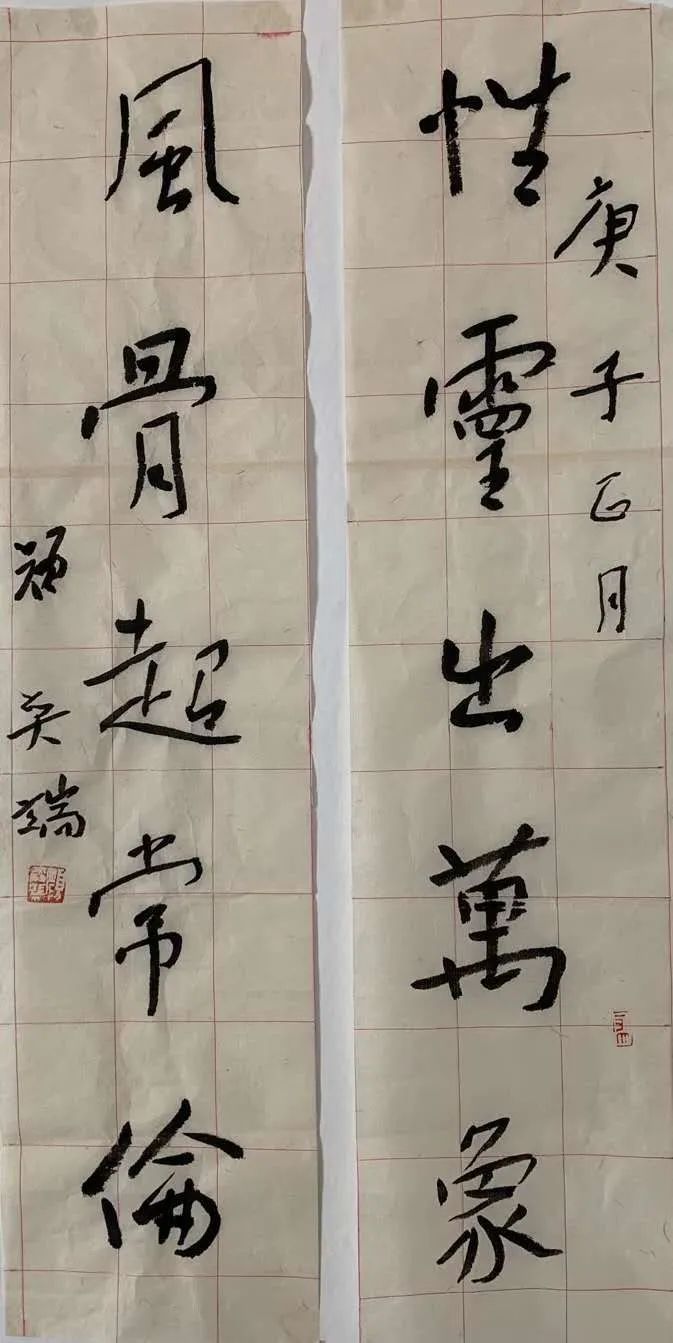 庚子正月
性靈出萬象
風骨超常倫
英端